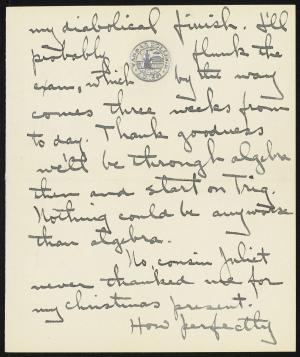 my diabolical finish. I'll
probably flunk the
exam, which by the way
comes three weeks from
to day. Thank goodness
we'll be through algebra
then and start on Trig.
Nothing could be anyworse
than algebra.
No, cousin Juliet
never thanked me for
my christmas present.
How perfectly